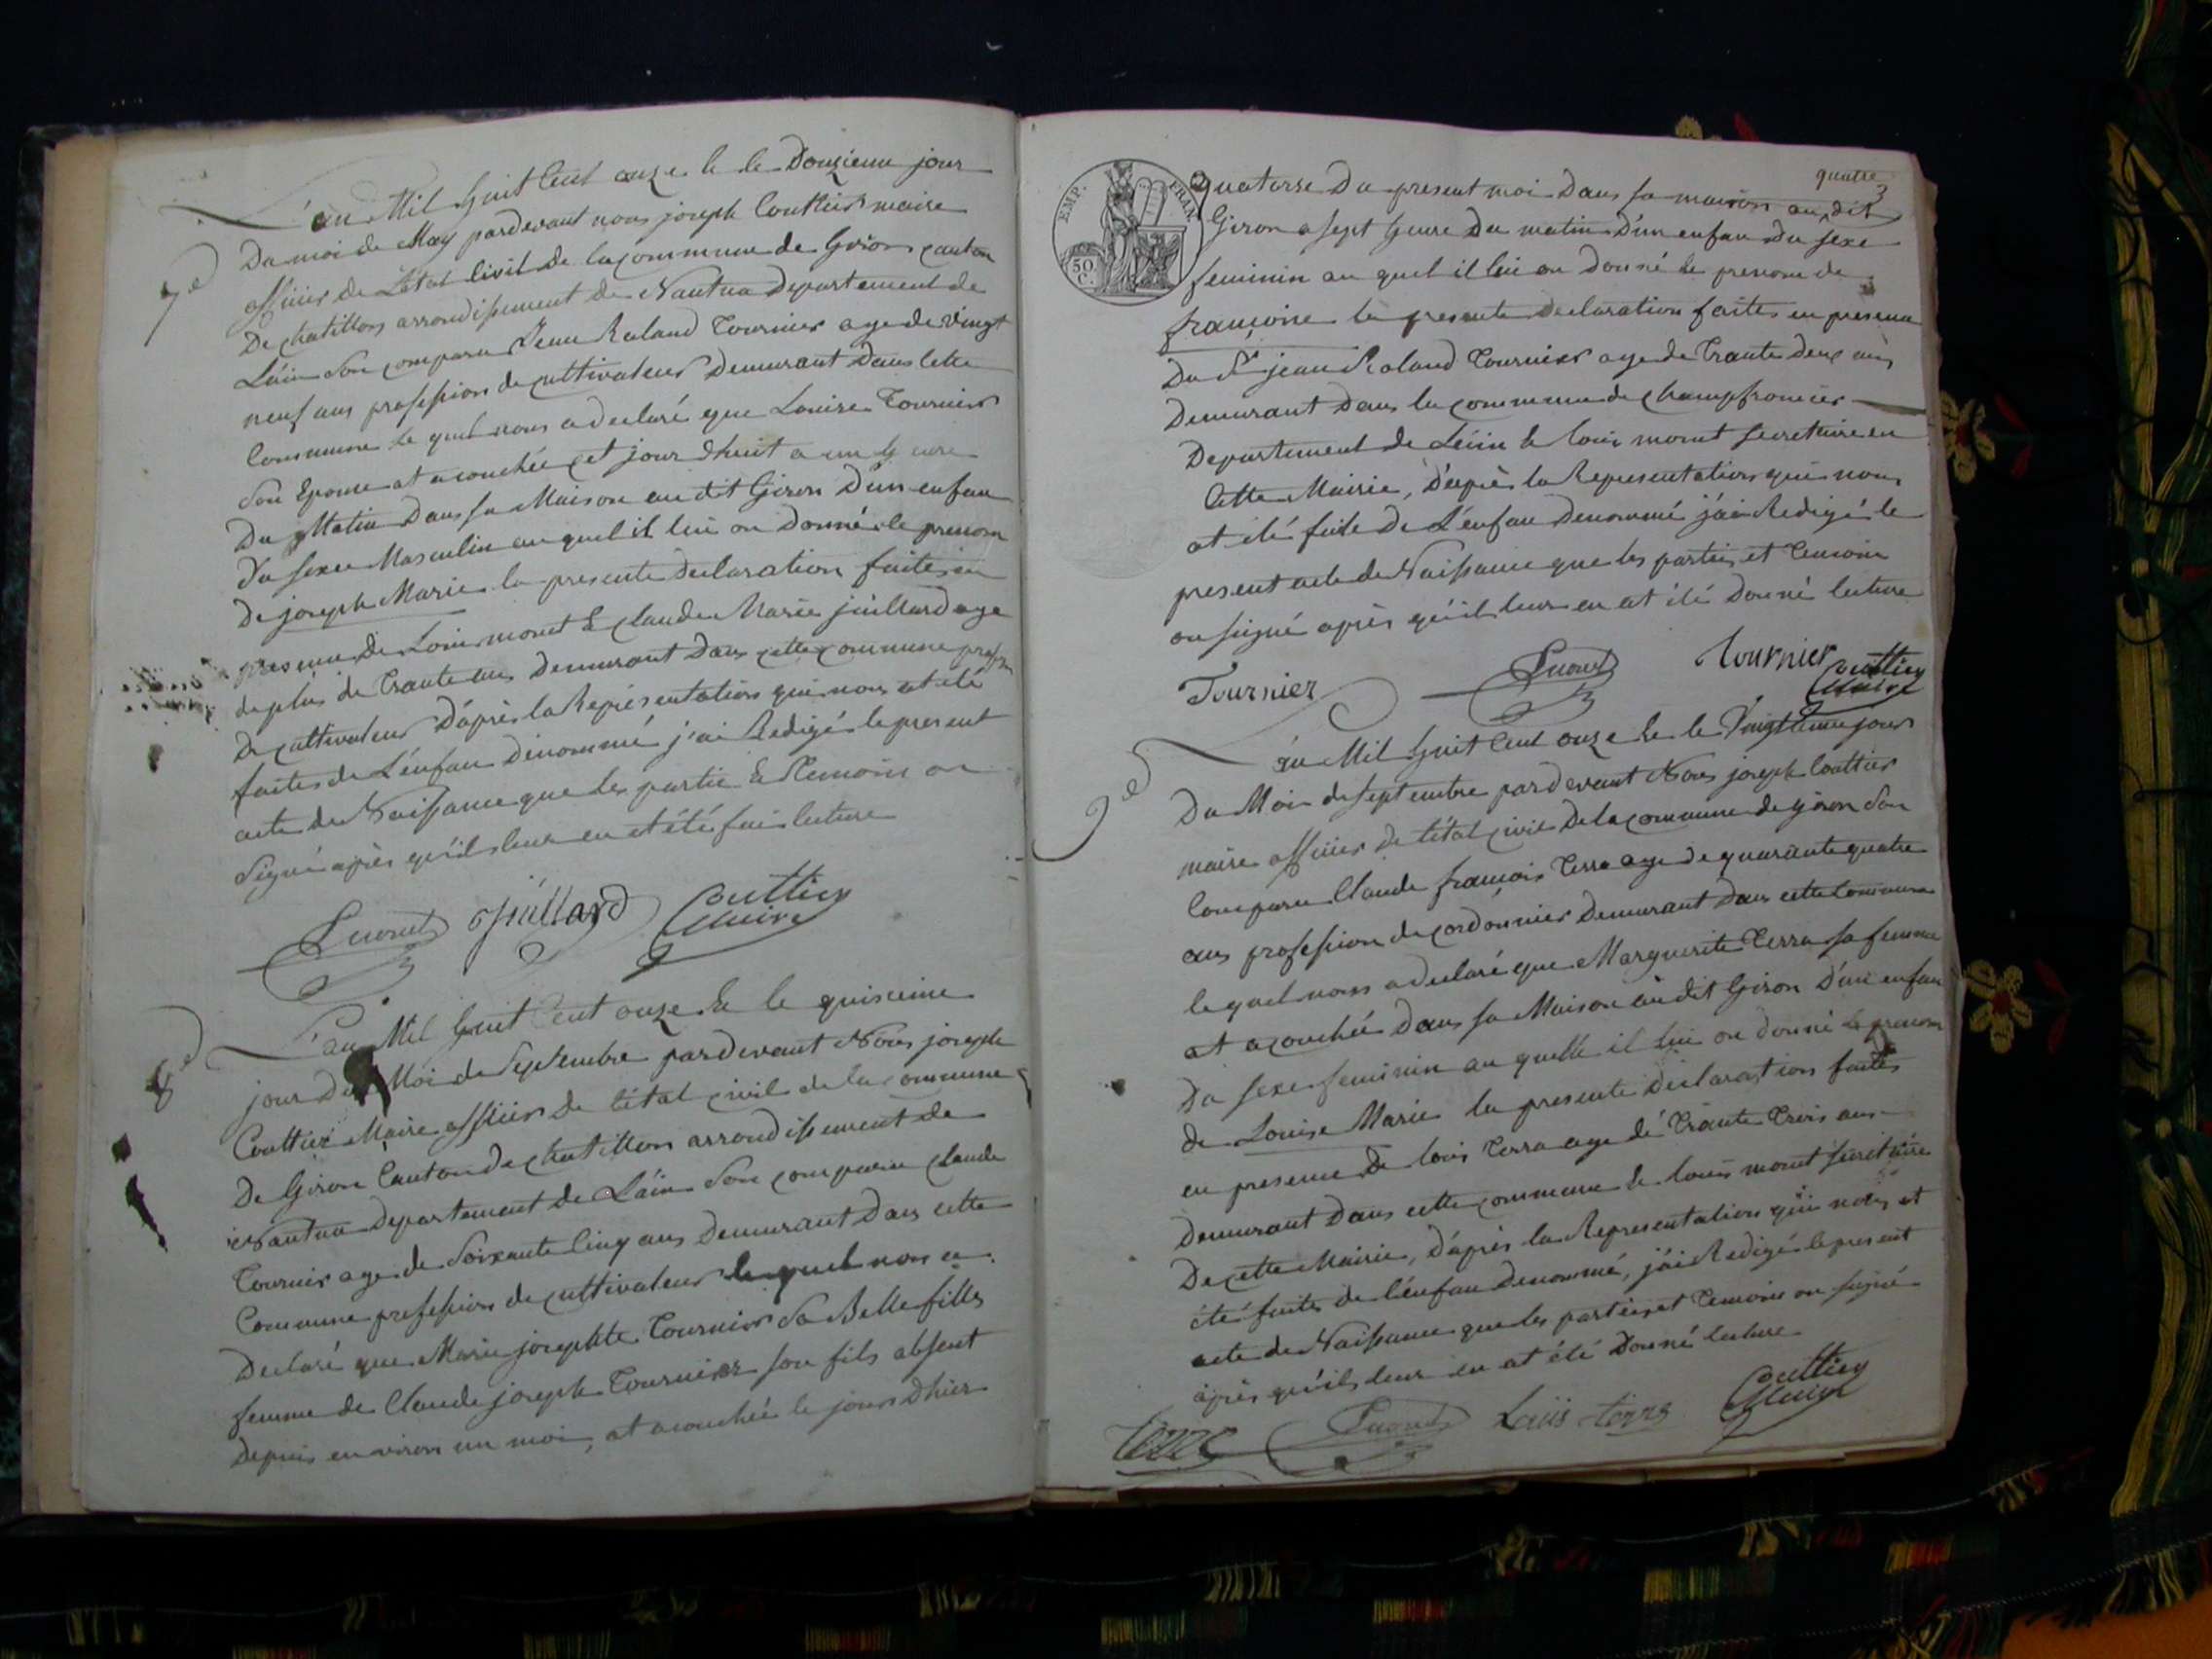 7e
L'an Mil huit Cent onze & le Douzieme jour
Du moi de May pardevant nous joseph Couttier maire
officier de L'état Civil de la commune de Giron canton
De chatillon arrondissement de Nantua Departement de
L'ain son comparu Jean Roland Tournier age de vingt
neuf ans profession de cultivateur Demurant dans cette
Commune le quel nous a declaré que Louise Tournier
Son Epouse at acouchée cet jour dhuit a un heure
Du Matin Dans sa Maison au dit Giron D'un enfan
Du sexe Masculin au quel il lui on Donné le prenom
De joseph Marie la presente declaration faite en
presence de Loui monet & claude Marie juillard age
de plus de Traute ans Demurant Dans cette commune profson
De cultivateur D'après la Représentation qui nous at été
faites de L'enfan dénommé j'ai Redigé le present
acte de Naissance que les partie & Temoin on
Signé après qu'il leur en at été fai lecture
Lmonet Jüillard Couttier
Maire
8e
L'an Mil huit Cent onze & le quisieme
jour Du Moi de Septembre pardevant Nous joseph
Couttier Maire officier de l'état civil de la commune
De Giron Canton de chatillon arrondissement de
Nantua Departement de L'ain Son comparu claude
Tournier age de Soixante Cinq ans Demurant dans cette
Commune profession de cultivateur le quel nous a
Declaré que Marie josephte Tournier Sa Belle fille
femme de Claude joseph Tournier son fils absent
Depuis environ un moi, at acouchée le jour D'hier
quatre
3
EMP. FRAN.
50
C.
quatorse Du present moi Dans sa maison au dit
Giron a sept heure Du matin D'un enfan Du sexe
feminin au quel il lui on Donné le prenom de
françoise la presente declaration faite en presence
Du Sr jean Roland Tournier age de Traute deux ans
Demurant Dans la commune de champfromier
Departement de L'ain & loui monet secretaire en
Cette Mairie, D'après la Representation qui nous
at été faite De L'enfan Denommé j'ai Redigé le
present acte de Naissance que les parties et Temoin
on signé après qu'il leur en at été Donné lecture
Tournier Lmonet Tournier Couttier
Maire
9e
L'an Mil huit Cent onze & le Vingtieme jour
Du Moi de septembre pardevant Nous joseph Couttier
maire officier de l'état civil De la commune de giron Son
Comparu Claude françois Terra age de quarante quatre
ans profession de cordonnier Demurant dans cette Commune
le quel nous a declaré que Marguerite Terra sa femme
at acouchée Dans sa Maison au dit Giron D'un enfan
Du sexe feminin au quelle il lui on donné le prenom
de Louise Marie la presente Declaration faite
en presence De loui Terra age dé Traute Trois ans
Demurant Dans cette commune & louis monet secretaire
De cette Mairie, D'après la Representation qui nous et
été faites de l'enfan Denommé, j'ai Redigé le present
acte de Naissance que les parties et Temoin on signé
après qu'il leur en at été Donné lecture
terra Lmonet Loüis terra Couttier
Maire